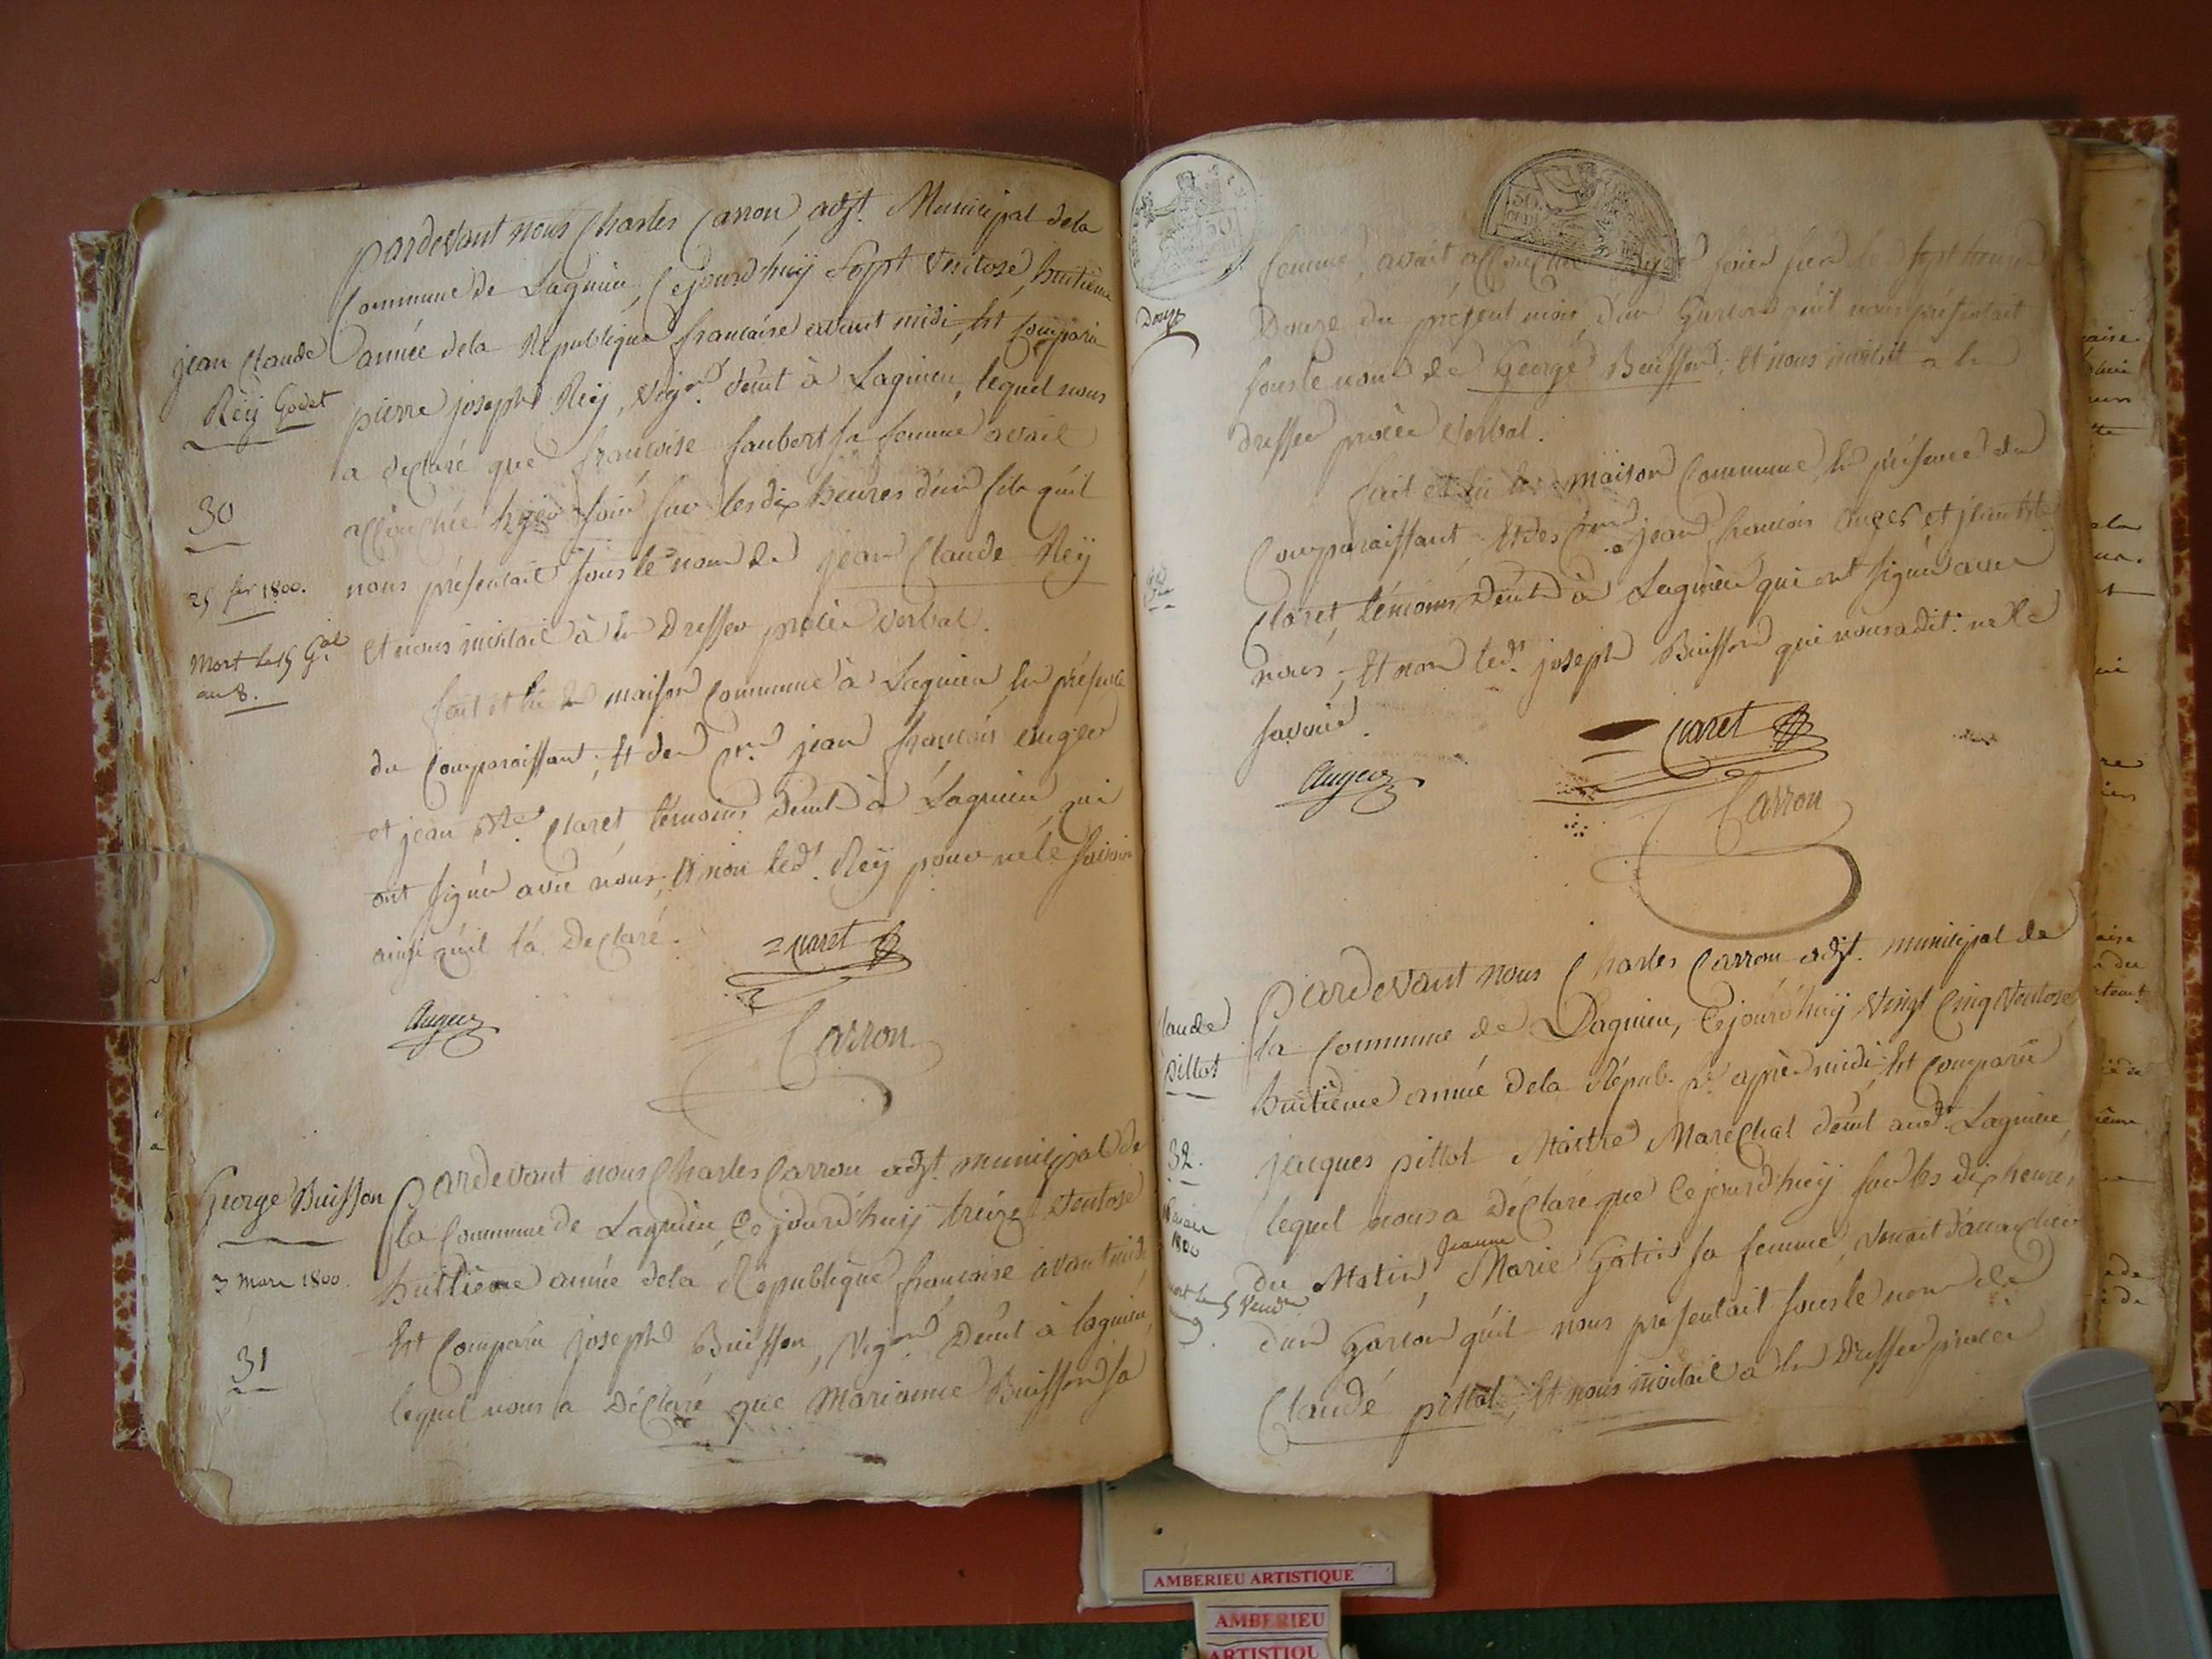 pardevant nous Charles Carron, adjt. Municipal dela
Commune de Lagnieu, Cejourd'huÿ Sept Ventose, huitieme
jean Claude
Reÿ Godet
30
25 fer 1800.
Mort le 15 Gal
an 8.
année dela République francaise avant midi, Est Comparu
pierre joseph Reÿ, Vign. demt à Lagnieu, lequel nous
a declaré que francoise Jaubert sa femme avait
accouchée hyer soir sur les dix heures d'un fils qu'il
nous présentait sous le nom de jean Claude Reÿ
Et nous invitait à en Dresser procès Verbal.
fait et lu en maison Commune à Lagnieu En présence
du Comparaissant, Et des jean françois auger
et jean Bte. Claret témoins demt à Lagnieu qui
ont signé avec nous, Et non ledt. Reÿ pour ne le savoir
ainsi qu'il l'a Declaré.
Claret
Auger
Carron
George Buisson
3 mars 1800.
31
Pardevant nous Charles Carron adjt. municipal de
la Commune de Lagnieu, Cejourd'huÿ treize Ventose
huitieme année dela République francaise avant midi
Est Comparu joseph Buisson, Vign. Demt à lagnieu,
lequel nous a Déclaré que Marianne Buisson sa
50
50
Douze
femme, avait accouchée soir sur les sept heures
Douze du présent mois d'un Garcon qu'il nous présentait
sous le nom de George Buisson, Et nous invitait a en
dresser procès Verbal.
fait et lu en maison Commune En présence du
Comparaissant Et des jean francois auger et jean Bte
Claret, témoins Demt à Lagnieu qui ont signé avec
nous, Et non ledt. joseph Buisson qui nous a dit ne le
savoir.
Claret
Auger
Carron
Claude
pittot
32.
16 mars
1800
mort le 5 Vendre
Pardevant nous Charles Carron adjt. municipal de
la Commune de Lagnieu, Cejourd'huÿ Vingt Cinq Ventose
huitieme année dela Répub. après midi, Est Comparu
jacques pittot Maitre Maréchal demt audt. Lagnieu,
lequel nous a Déclaré que Cejourd'huÿ sur les dix heures
du Matin, Jeanne Marie Gatin sa femme, Venait d'accoucher
d'un Garcon qu'il nous présentait sous le nom de
Claude pittot, Et nous invitait a en Dresser procès
AMBERIEU ARTISTIQUE
AMBERIEU
ARTISTIQU